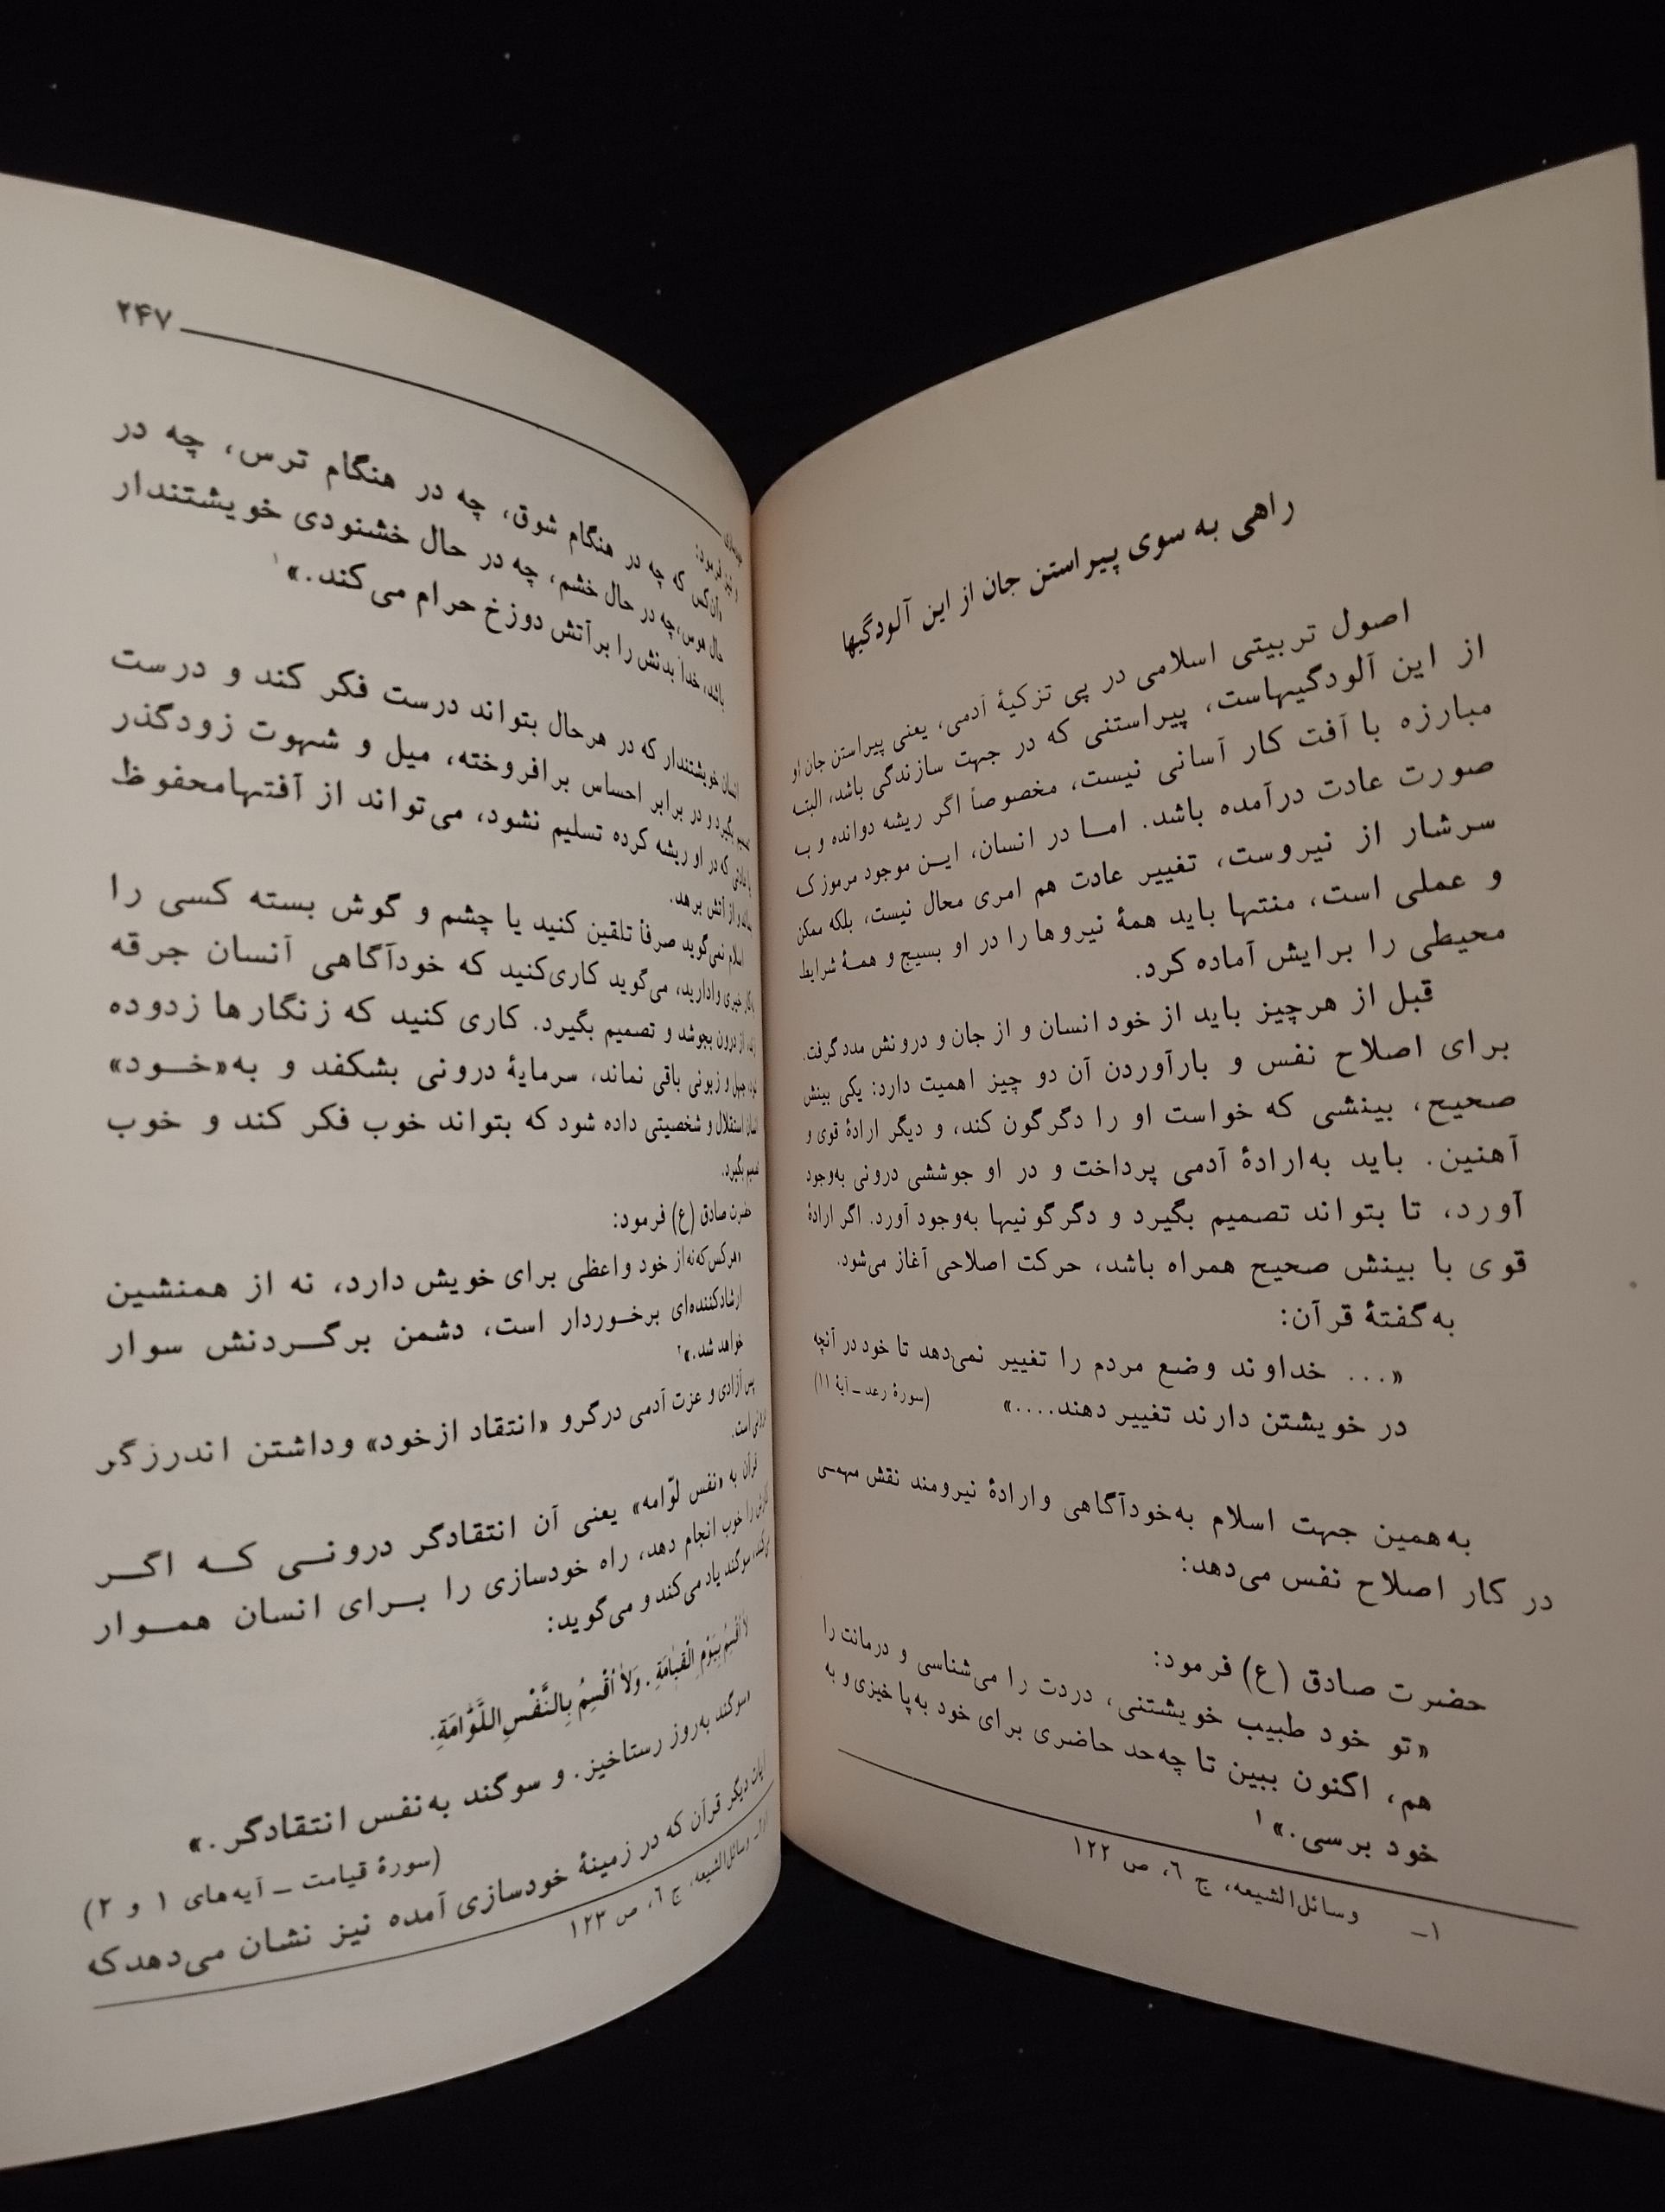 راهی به سوی پیراستن جان از این آلودگیها
اصول تربیتی اسلامی در پی تزکیهٔ آدمی، یعنی پیراستن جان او
از این آلودگیهاست، پیراستنی که در جهت سازندگی باشد، البته
مبارزه با آفت کار آسانی نیست، مخصوصاً اگر ریشه دوانده و به
صورت عادت درآمده باشد. اما در انسان، این موجود مرموز ک
سرشار از نیروست، تغییر عادت هم امری محال نیست، بلکه ممکن
و عملی است، منتها باید همهٔ نیروها را در او بسیج و همهٔ شرایط
محیطی را برایش آماده کرد.
قبل از هرچیز باید از خود انسان و از جان و درونش مدد گرفت.
برای اصلاح نفس و بارآوردن آن دو چیز اهمیت دارد: یکی بینش
صحیح، بینشی که خواست او را دگرگون کند، و دیگر ارادهٔ قوی و
آهنین. باید به‌ارادهٔ آدمی پرداخت و در او جوششی درونی به‌وجود
آورد، تا بتواند تصمیم بگیرد و دگرگونیها به‌وجود آورد. اگر ارادهٔ
قوی با بینش صحیح همراه باشد، حرکت اصلاحی آغاز می‌شود.
به‌گفتهٔ قرآن:
«... خداوند وضع مردم را تغییر نمی‌دهد تا خود در آنچه
در خویشتن دارند تغییر دهند....» (سورهٔ رعد ـ آیهٔ ۱۱)
به‌همین جهت اسلام به‌خودآگاهی وارادهٔ نیرومند نقش مهمی
در کار اصلاح نفس می‌دهد:
حضرت صادق (ع) فرمود:
«تو خود طبیب خویشتنی، دردت را می‌شناسی و درمانت را
هم، اکنون ببین تا چه‌حد حاضری برای خود به‌پا خیزی و به
خود برسی.»۱
۱ـ وسائل‌الشیعه، ج ۶، ص ۱۲۲
۲۴۷
فرمود:
آن‌کس که چه در هنگام شوق، چه در هنگام ترس، چه در
حال هوس، چه در حال خشم، چه در حال خشنودی خویشتندار
باشد، خدا بدنش را برآتش دوزخ حرام می‌کند.»۱
انسان خویشتندار که در هرحال بتواند درست فکر کند و درست
بگیرد و در برابر احساس برافروخته، میل و شهوت زودگذر
یا عادتی که در او ریشه کرده تسلیم نشود، می‌تواند از آفتهامحفوظ
و از آتش برهد.
اسلام نمی‌گوید صرفاً تلقین کنید یا چشم و گوش بسته کسی را
خیری وادارید، می‌گوید کاری‌کنید که خودآگاهی آنسان جرقه
از درون بجوشد و تصمیم بگیرد. کاری کنید که زنگارها زدوده
جهل و زبونی باقی نماند، سرمایهٔ درونی بشکفد و به«خود»
استقلال و شخصیتی داده شود که بتواند خوب فکر کند و خوب
بگیرد.
حضرت صادق (ع) فرمود:
«هرکس که‌نه‌از خود واعظی برای خویش دارد، نه از همنشین
ارشادکننده‌ای برخوردار است، دشمن برگردنش سوار
خواهد شد.»۲
پس آزادی و عزت آدمی درگرو «انتقاد ازخود» وداشتن اندرزگر
درونی است.
قرآن به «نفس لوّامه» یعنی آن انتقادگر درونی که اگر
کارش را خوب انجام دهد، راه خودسازی را برای انسان هموار
می‌کند، سوگند یاد می‌کند و می‌گوید:
لاٰ اُقْسِمُ بِیَوْمِ الْقِیٰامَةِ. وَلاٰ اُقْسِمُ بِالنَّفْسِ اللَّوّٰامَةِ.
«سوگند به‌روز رستاخیز. و سوگند به‌نفس انتقادگر.»
(سورهٔ قیامت ـ آیه‌های ۱ و ۲)
آیات دیگر قرآن که در زمینهٔ خودسازی آمده نیز نشان می‌دهدکه
۱و۲ـ وسائل‌الشیعه، ج ۶، ص ۱۲۳